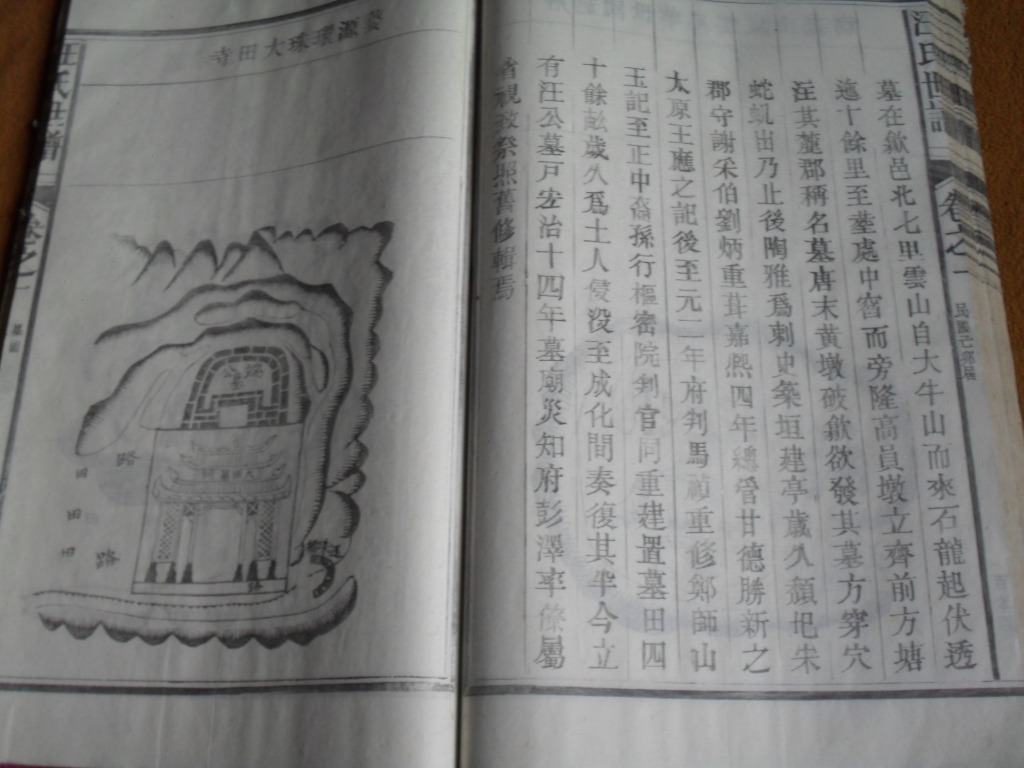 汪氏世譜
卷之一
民國己卯屆
墓在歙邑北七里雲山自大牛山而來石龍起伏透
迤十餘里至塟處中窩而旁隆高員墩立齊前方塘
注其麓郡稱名墓唐末黄墩破歙欲發其墓方穿穴
蛇虬出乃止後陶雅爲刺史築垣建亭歲久頹圯宋
郡守謝采伯劉炳重葺嘉熙四年總管甘德勝新之
太原王應之記後至元二年府判馬禎重修鄭師山
玉記至正中裔孫行樞密院判官同重建置墓田四
十餘畝歲久爲土人侵没至成化間奏復其半今立
有汪公墓戸宏治十四年墓廟災知府彭澤率僚屬
省視致祭照舊修輯焉
婺源環珠大田寺
汪氏世譜
卷之一
墓圖
路
田
田
田
路